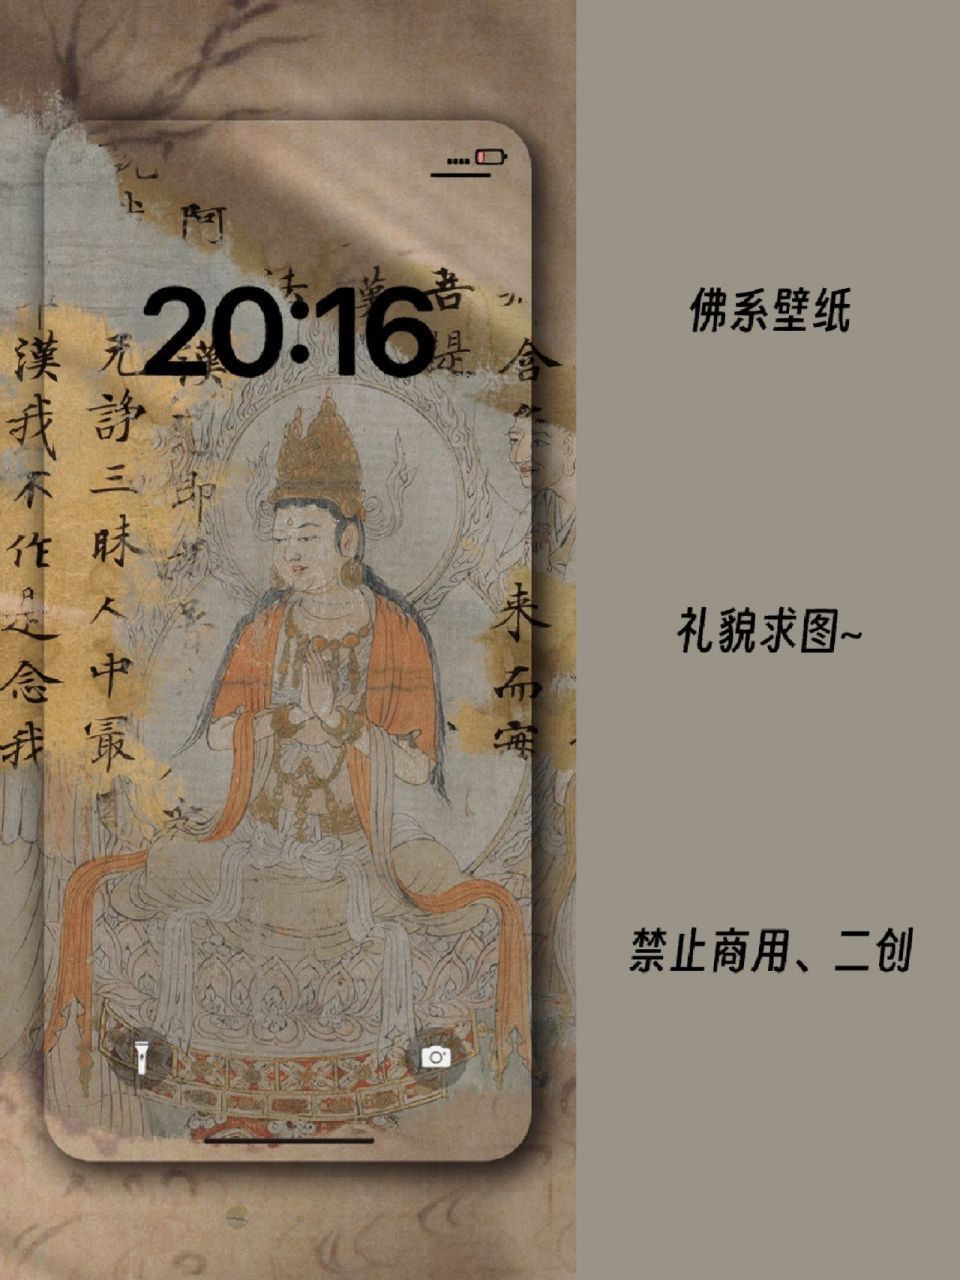 20:16
阿
漢我不作是念我
无諍三昧人中最
即
是
含
来而
佛系壁纸
礼貌求图~
禁止商用、二创